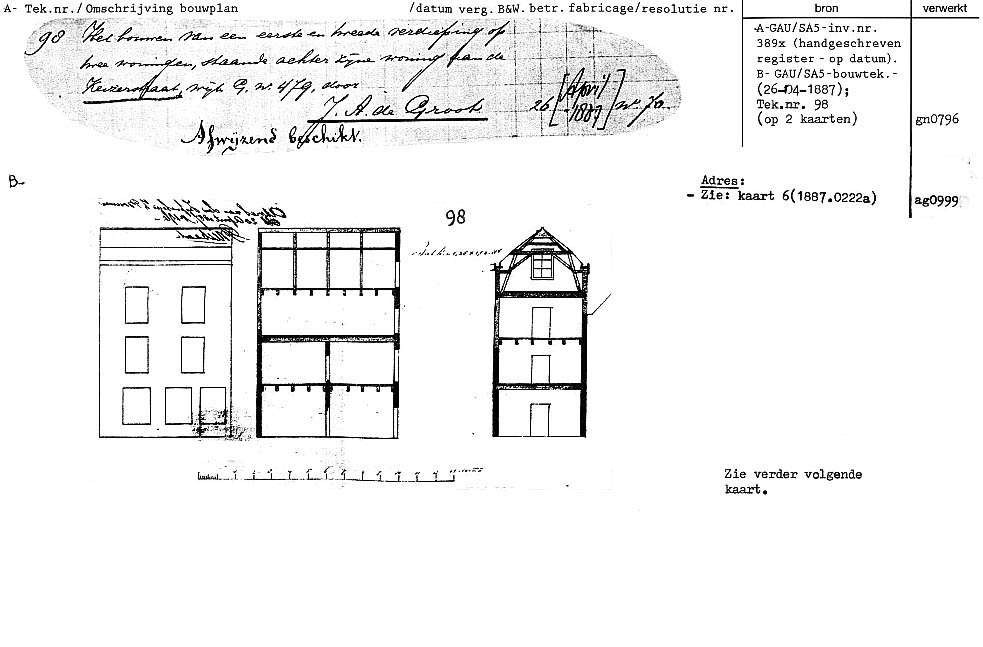 A- Tek.nr./ Omschrijving bouwplan /datum verg. B&W. betr. fabricage/resolutie nr. bron verwerkt
98 Het bouwen van een eerste en tweede verdieping op
twee woningen, staande achter zijne woning aan de
Keizerstraat, wijk G, nr. 479, door
J. A. de Groot 26 [April 1887] nr. 70.
Afwijzend beschikt.
A-GAU/SA5-inv.nr.
389x (handgeschreven
register - op datum).
B- GAU/SA5-bouwtek.-
(26-04-1887);
Tek.nr. 98
(op 2 kaarten) gn0796
B-
Adres:
- Zie: kaart 6(1887.0222a) ag0999
98
Zie verder volgende
kaart.